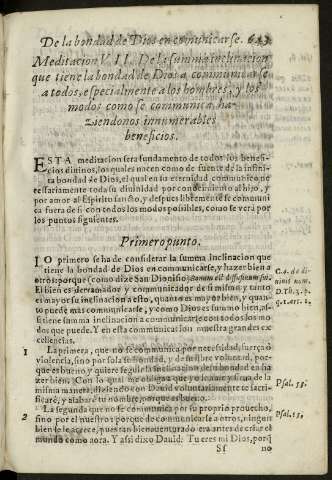 De la bondad de Dios en comunicarse. 643
Meditacion VII. De la summa inclinacion
que tiene la bondad de Dios a communicarse
a todos, especialmente a los hombres, y los
modos como se communica, ha-
ziendonos innumerables
beneficios.
ESTA meditacion sera fundamento de todos los benefi-
cios diuinos, los quales nacen como de fuente de la infini-
ta bondad de Dios, el qual en su eternidad, comunicò ne
cessariamente toda su diuinidad por conocimiento al hijo, y
por amor al Espiritu santo, y despues libremente se comuni
ca fuera de si con todos los modos possibles, como se verà por
los puntos siguientes.
Primero punto.
LO primero se ha de considerar la summa inclinacion que
tiene la bondad de Dios en communicarse, y hazer bien a
otros: porque (como dize San Dionisio) bonum est diffusiuum sui.
El bien es derramador y comunicador de si mismo, y tanto
es mayor su inclinacion a esto, quanto es mayor bien, y quan-
to puede mas communicarse, y como Dios es sumo bien, assi
tiene summa inclinacion a comunicarse con todos los mo-
dos que puede. Y en esta communicacion muestra grandes ex
celencias.
1 La primera, que no se comunica por necessidad, fuerça o
violencia, sino por sola su bondad, y de su libre voluntad, por-
que es bueno, y quiere seguir la inclinacion de su bondad en ha
zer bien. Con lo qual me obliga a que yo le ame y sirua de la
misma manera, diziendo con Dauid voluntariamente te sacri-
ficarè, y alabarè tu nombre, porque es bueno.
2 La segunda que no se comunica por su proprio prouecho,
sino por el nuestro: porque de comunicarse a otros, ningun
bien se le acrece, pues tan bienauenturado era antes de criar el
mundo como aora. Y assi dixo Dauid. Tu eres mi Dios, porq̃
Sf no
C. 4. de di-
uinis nom.
D. Th. 3. p.
q. 1. art. 1.
Psal. 53.
Psal. 15.